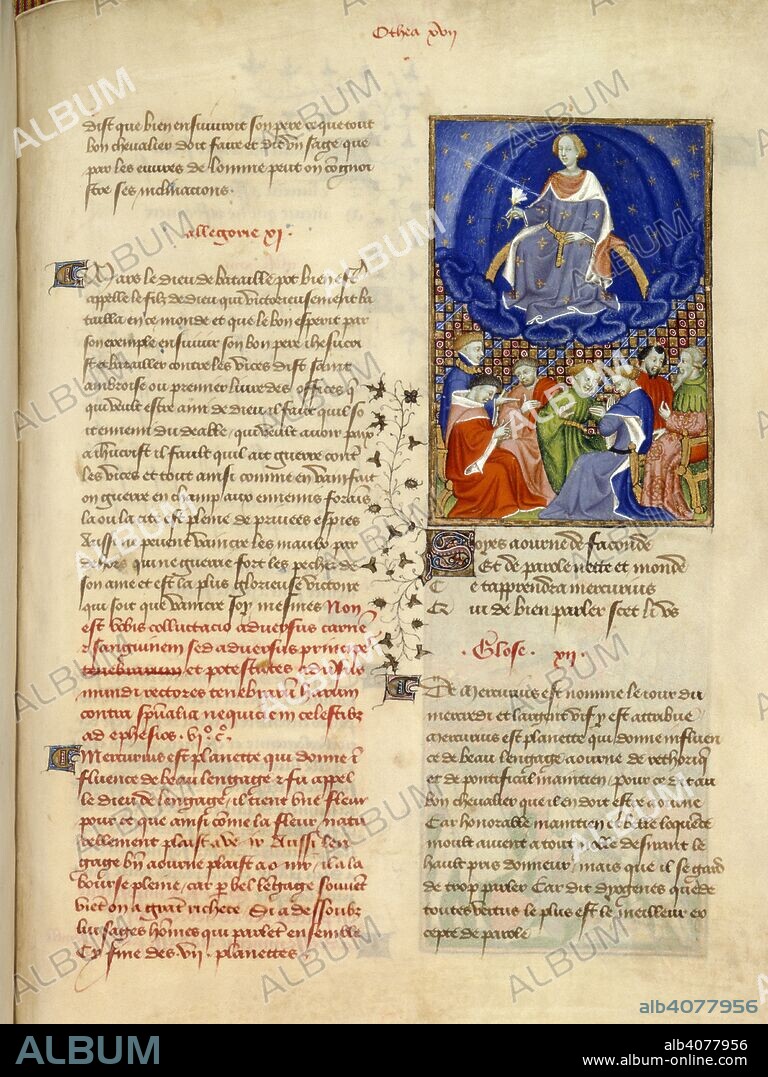 Othea xvii
dist que bien ensuivroit son pere ce que tout
bon chevalier doit faire et dit un sage que
par les euvres de lomme peut on cognoi
stre ses inclinacions.
allegorie xi.
Mars le dieu de bataille pot bien estre
appelle le filz de dieu qui victorieusement ba
tailla en ce monde et que le bon esperit par
son exemple ensuivir son bon pere ihesucri
st et batailler contre les vices dist saint
ambroise ou premier livre des offices q
qui veult estre ami de dieu il faut quil so
it ennemi du deable, qui veult avoir paix
a ihucrist il fault quil ait guerre cont
les vices et tout ainsi comme en vain fait
on guerre en champ aux ennemis forais
la ou la cite est pleine de privees espies
Aussi ne peuent vaincre les maulx par
dehors qui ne guerre fort les pechez de
son ame et est la plus glorieuse victoire
qui soit que vaincre soy mesmes Non
est vobis colluctacio adversus carnem
et sanguinem sed adversus principe
tenebrarum et potestates adversus
mundi rectores tenebrarum harum
contra spualia nequicie in celestibz
ad ephesios. vi°. c°.
Mercurius est planette qui donne i
fluence de beau lengage et fu appel
le dieu de lengage, il tient une fleur
pour ce que ainsi come la fleur, natu
rellement plaist a veoir Aussi len
gage bn aourne plaist a oir, il a la
bourse pleine, car p bel lengage souvent
vient on a grant richece. Si a dessoubz
lui sages homes qui parlent ensemble
Cy fine des .vii. planettes.
Soyes aourne de faconde
Et de parole nette et monde
Ce tapprendra mercurius
Qui de bien parler scet les us
Glose. xii.
De Mercurius est nomme le iour du
mercredi et largent vif y est attribue
Mercurius est planette qui donne influen
ce de beau lengage aourne de rethorique
et de pontifical maintien, pour ce dit au
bon chevalier que il en doit estre aourne
Car honorable maintien et belle loquence
moult avient a tout noble desirant le
hault pris donneur, mais que il se gard
de trop parler Car dit dyogenes que de
toutes vertus le plus est le meilleur ex
cepte de parole
ALBUM
alb4077956
ALBUM
alb4077956
www.album-online.com